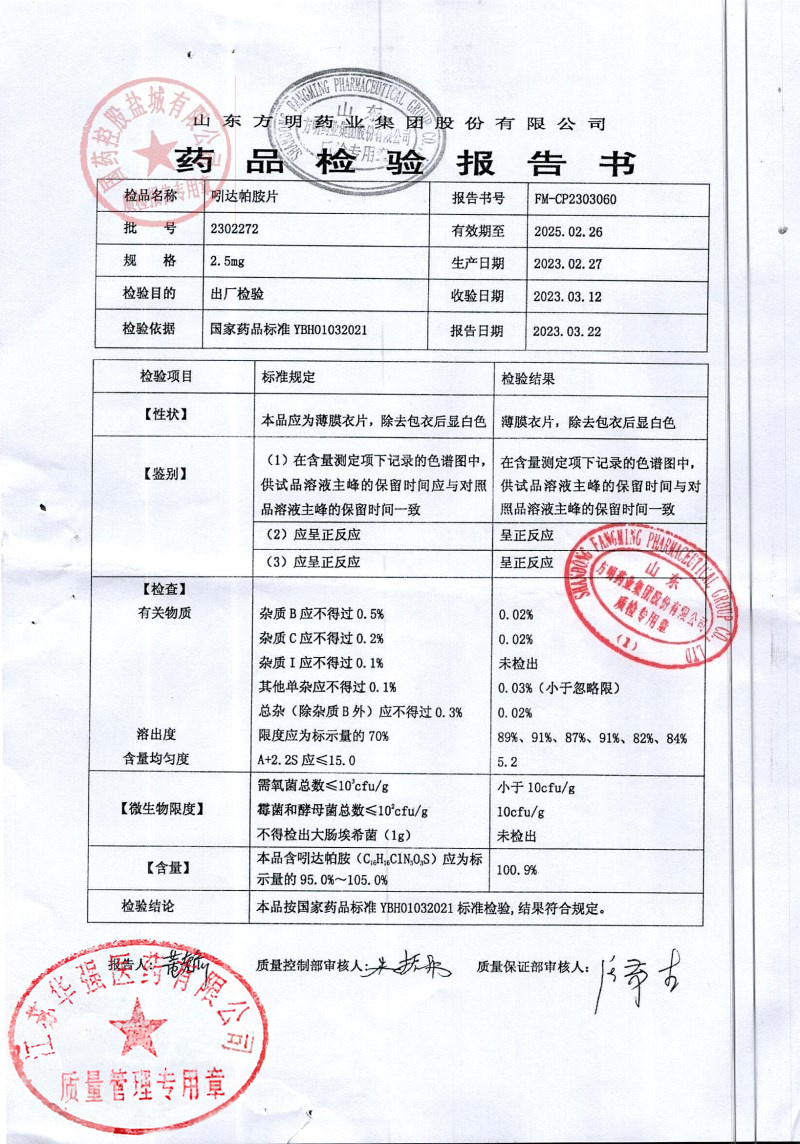 山东方明药业集团股份有限公司
药品检验报告书
SHANDONG FANGMING PHARMACEUTICAL GROUP CO.,
山东
方明药业集团股份有限公司
国药控股盐城有限公司
质检报告专用章
检品名称 吲达帕胺片 报告书号 FM-CP2303060
批 号 2302272 有效期至 2025.02.26
规 格 2.5mg 生产日期 2023.02.27
检验目的 出厂检验 收验日期 2023.03.12
检验依据 国家药品标准 YBH01032021 报告日期 2023.03.22
检验项目 标准规定 检验结果
【性状】 本品应为薄膜衣片，除去包衣后显白色 薄膜衣片，除去包衣后显白色
【鉴别】
（1）在含量测定项下记录的色谱图中，
供试品溶液主峰的保留时间应与对照
品溶液主峰的保留时间一致
在含量测定项下记录的色谱图中，
供试品溶液主峰的保留时间与对
照品溶液主峰的保留时间一致
（2）应呈正反应 呈正反应
（3）应呈正反应 呈正反应
【检查】
有关物质 杂质 B 应不得过 0.5% 0.02%
杂质 C 应不得过 0.2% 0.02%
杂质 I 应不得过 0.1% 未检出
其他单杂应不得过 0.1% 0.03%（小于忽略限）
总杂（除杂质 B 外）应不得过 0.3% 0.02%
溶出度 限度应为标示量的 70% 89%、91%、87%、91%、82%、84%
含量均匀度 A+2.2S 应≤15.0 5.2
【微生物限度】
需氧菌总数≤10³cfu/g 小于 10cfu/g
霉菌和酵母菌总数≤10²cfu/g 10cfu/g
不得检出大肠埃希菌（1g） 未检出
【含量】
本品含吲达帕胺（C₁₆H₁₆ClN₃O₃S）应为标
示量的 95.0%～105.0%
100.9%
检验结论 本品按国家药品标准 YBH01032021 标准检验,结果符合规定。
SHANDONG FANGMING PHARMACEUTICAL GROUP CO., LTD
山东
方明药业集团股份有限公司
质检专用章
(1)
报告人： 质量控制部审核人： 质量保证部审核人：
江苏华强医药有限公司
质量管理专用章